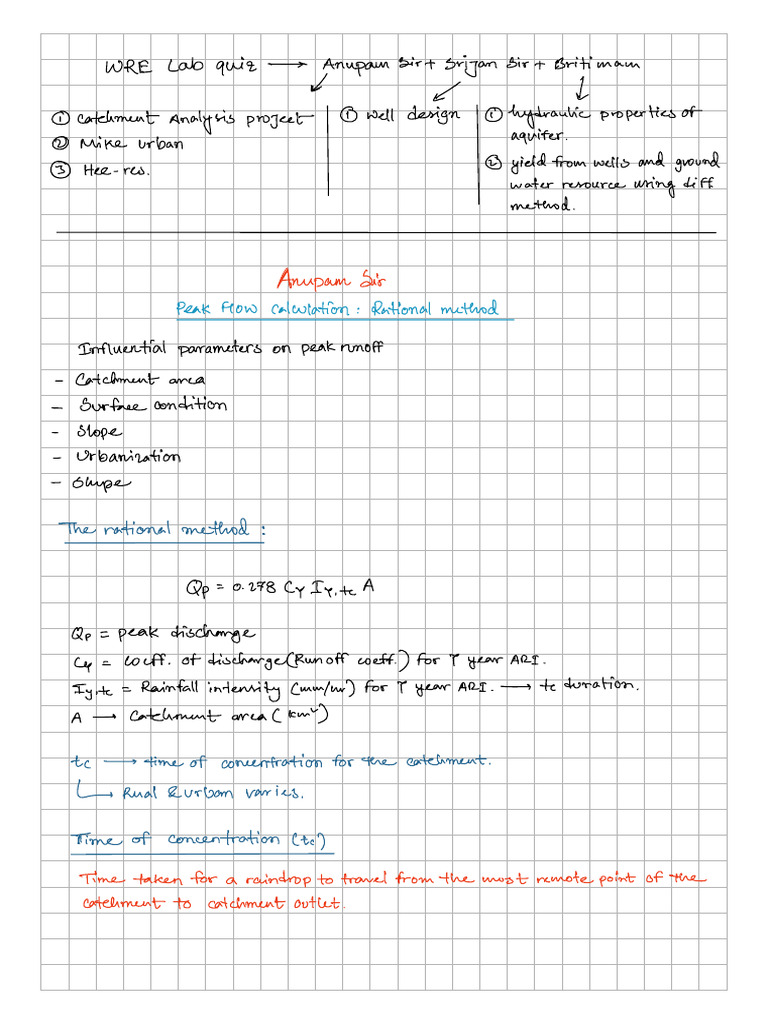 WRE Lab quiz → Anupam Sir + Srijan Sir + Britimam
① Catchment Analysis project
② Mike urban
③ Hec-res.
① Well design
① hydraulic properties of
aquifer.
② yield from wells and ground
water resource using diff
method.
Anupam Sir
Peak Flow calculation : Rational method
Influential parameters on peak runoff
- Catchment area
- Surface condition
- Slope
- Urbanization
- Shape
The rational method :
Qp = 0.278 CY IY,tc A
Qp = peak discharge
CY = coeff. of discharge (Runoff coeff.) for T year ARI.
IY,tc = Rainfall intensity (mm/hr) for T year ARI. → tc duration.
A → Catchment area (km²)
tc → time of concentration for the catchment.
↳ Rual & urban varies.
Time of concentration (tc)
Time taken for a raindrop to travel from the most remote point of the
catchment to catchment outlet.